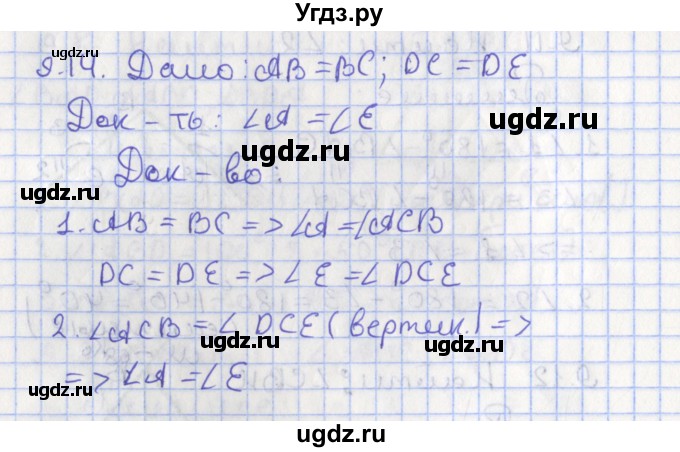 Угдз.ру
9.14. Дано: AB = BC; DC = DE
Док-ть: ∠A = ∠E
Док-во:
1. AB = BC => ∠A = ∠ACB
DC = DE => ∠E = ∠DCE
2. ∠ACB = ∠DCE (вертик.) =>
=> ∠A = ∠E
ugdz.ru
ugdz.ru
ugdz.ru
ugdz.ru
ugdz.ru
ugdz.ru
ugdz.ru
ugdz.ru
ugdz.ru
ugdz.ru